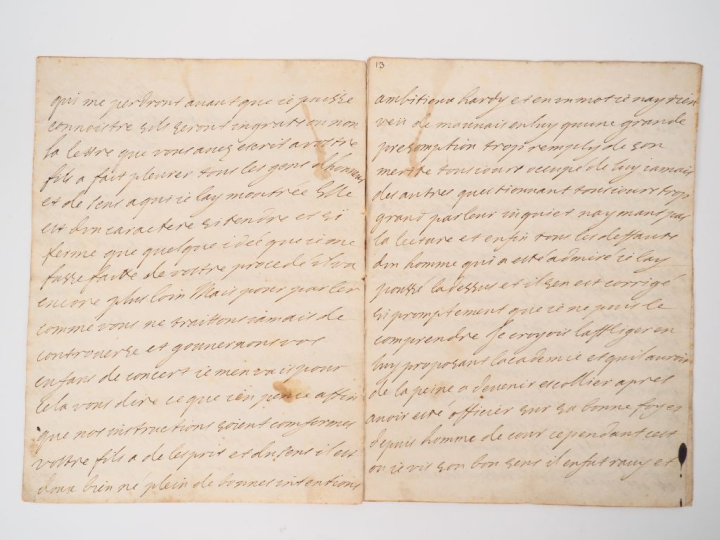 qui me perdront avant que ie puisse
connoistre sils seront ingrats ou non
la lettre que vous avez escrit a vostre
fils a fait pleurer tous les gens dhonneur
et de sens a qui ie lay montrée Elle
est dun caractere si tendre et si
ferme que quelque idée que ie me
fusse faitte de vostre procedé il va
encore plus loin Mais pour parler
comme vous ne traittons iamais de
controverse et gouvernons vos
enfans de concert ie men vais pour
cela vous dire ce que ien pence affin
que nos instructions soient conformes
vostre fils a de lesprit et du sens il est
doux bien né plein de bonnes intentions
13
ambitieux hardy et en un mot ie nay rien
veu de mauvais en luy quune grande
presomption trop remply de son
merite tousiours occupé de luy iamais
des autres questionnant tousiours trop
grand parleur inquiet naymant pas
la lecture et enfin tous les deffauts
dun homme qui a esté admiré ie lay
poussé la dessus et il sen est corrigé
si promptement que ie ne puis le
comprendre Je croyois laffliger en
luy proposant lacademie et quil auroit
de la peine a devenir escollier apres
avoir esté officier sur sa bonne foy et
depuis homme de cour cependant cest
ou ie vis son bon sens il en fut ravy et